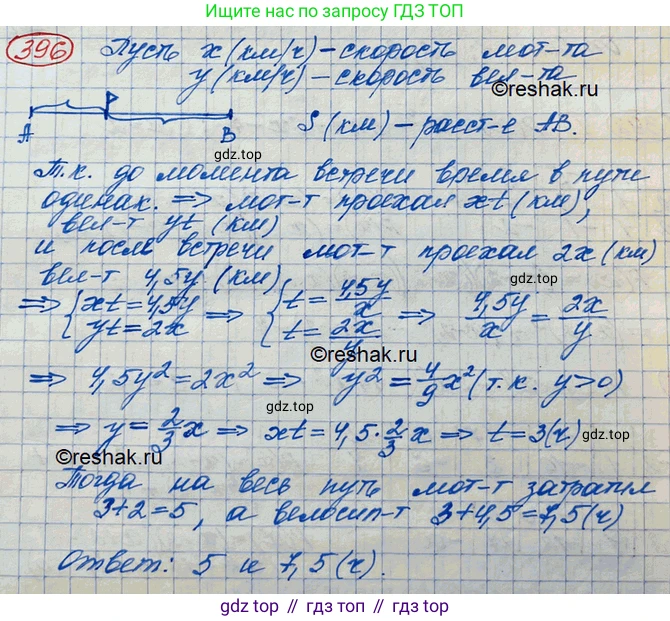 Ищите нас по запросу ГДЗ ТОП
396 Пусть x (км/ч) – скорость мот-та
y (км/ч) – скорость вел-та
©reshak.ru
A P B S (км) – расст-е AB.
gdz.top
Т.к. до момента встречи время в пути
одинак. ⇒ мот-т проехал xt (км),
вел-т yt (км)
и после встречи мот-т проехал 2x (км)
вел-т 4,5y (км)
gdz.top
⇒ { xt = 4,5y yt = 2x ⇒ { t = 4,5y/x t = 2x/y ⇒ 4,5y/x = 2x/y
©reshak.ru
⇒ 4,5y² = 2x² ⇒ y² = 4/9 x² (т.к. y>0)
gdz.top
⇒ y = 2/3 x ⇒ xt = 4,5 · 2/3 x ⇒ t = 3 (ч)
©reshak.ru
Тогда на весь путь мот-т затратил
3+2=5, а велосип-т 3+4,5=7,5 (ч)
©reshak.ru
Ответ: 5 и 7,5 (ч).
gdz.top
gdz.top // гдз.топ // gdz.top // гдз.топ // gdz.top